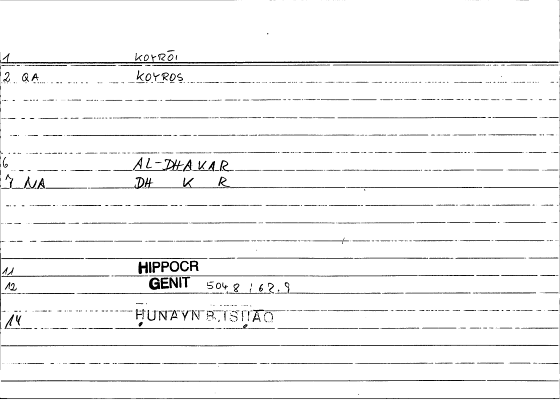 1 KOYRŌI
2 QA KOYROS
6 AL-DHAKAR
7 NA DH K R
11 HIPPOCR
12 GENIT 504,8 / 62,9
14 ḤUNAYN B. ISḤĀQ